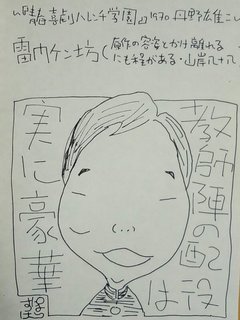 喜劇ハレンチ学園』1970 丹野雄二
雷巾ケン坊(原作の容姿とかけ離れる
にも程がある・山岸八十八
教師陣の配役は
実に豪華